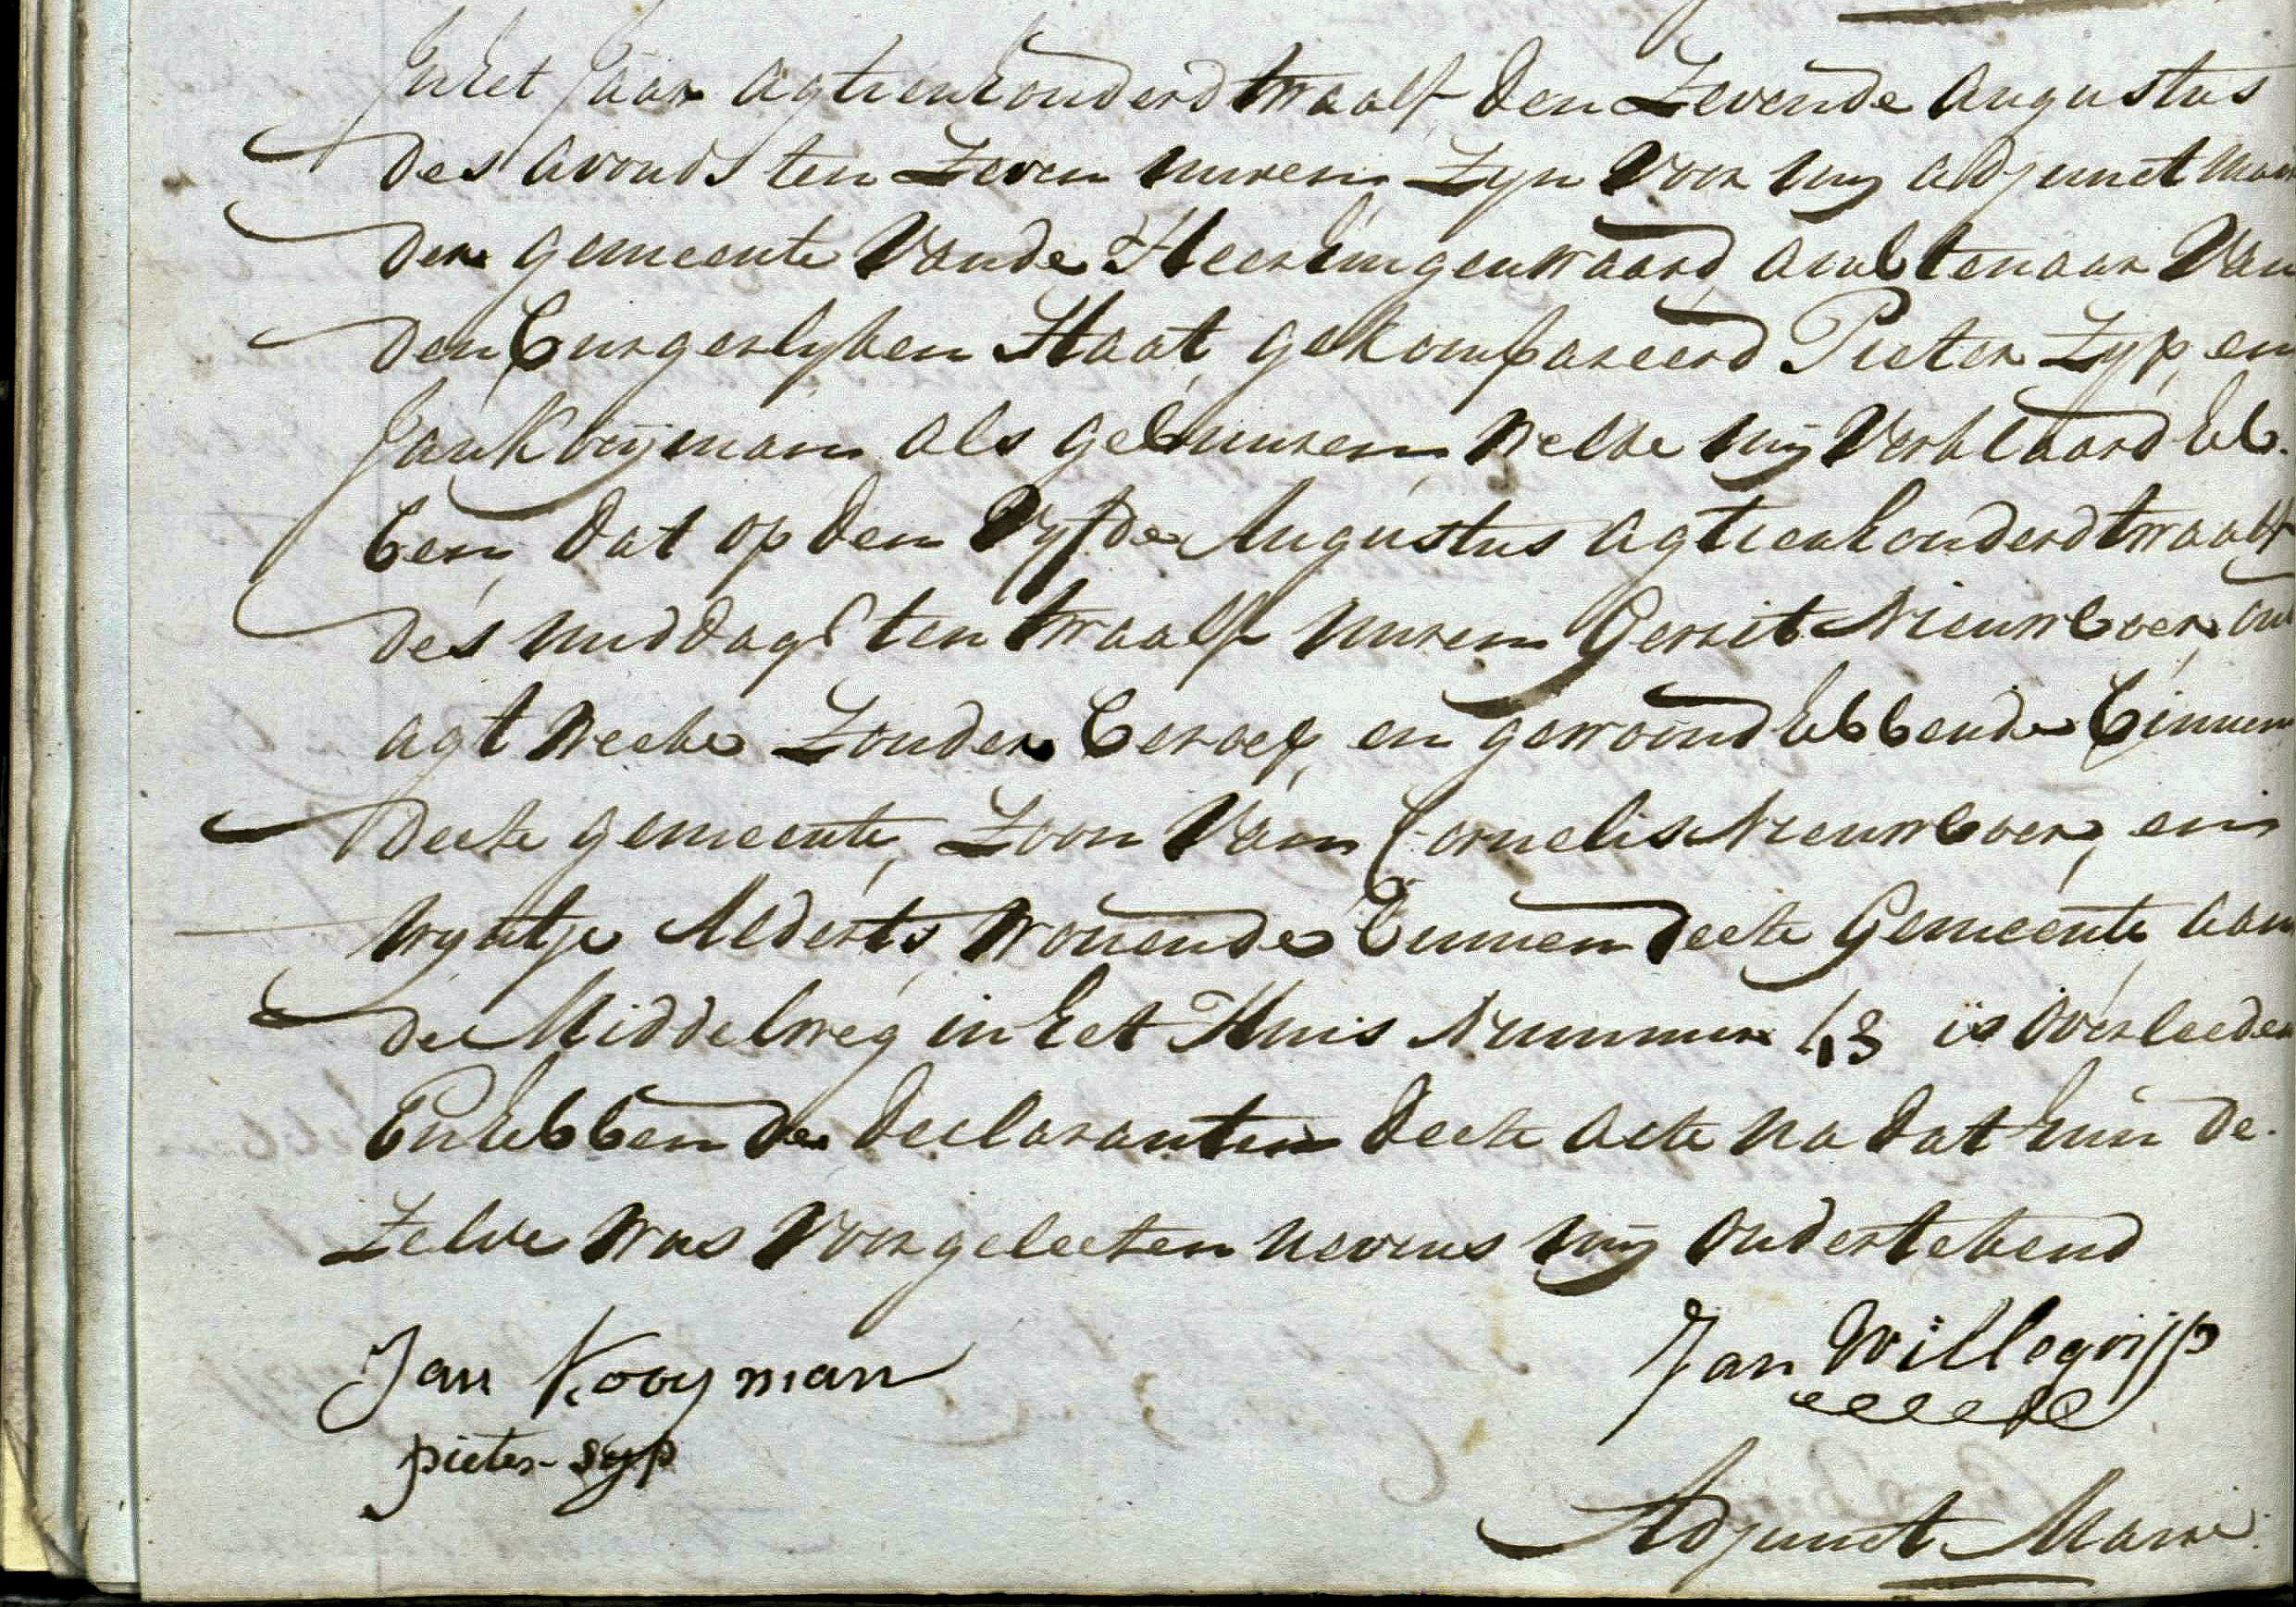 In het Jaar agtienhonderd twaalf den Zevende augustus
des avonds ten Zeven uuren Zyn voor my adjunct mair
der gemeente van de Heerhugenwaard, ambtenaar van
den burgerlyken Staat, gekompareerd Pieter Zyp, en
Jan Kooyman als gebuuren, welke my verklaard heb-
ben, dat op den vyfde Augustus agtienhonderd twaalf
des middags ten twaalf uuren Gerrit Nieuwboer, oud
agt weeke Zonder beroep, en gewoond hebbende binnen
deeze gemeente, Zoon van Cornelis Nieuwboer, en
Alderts, wonende binnen deeze Gemeente aan
de Middelweg in het Huis Nummer is overleeden
En hebben de declaranten deeze acte na dat hun de-
Zelve was voorgeleezen nevens my ondertekend
Jan Kooyman
Jan Willegrijp
pieter syp
Adjunct Maire